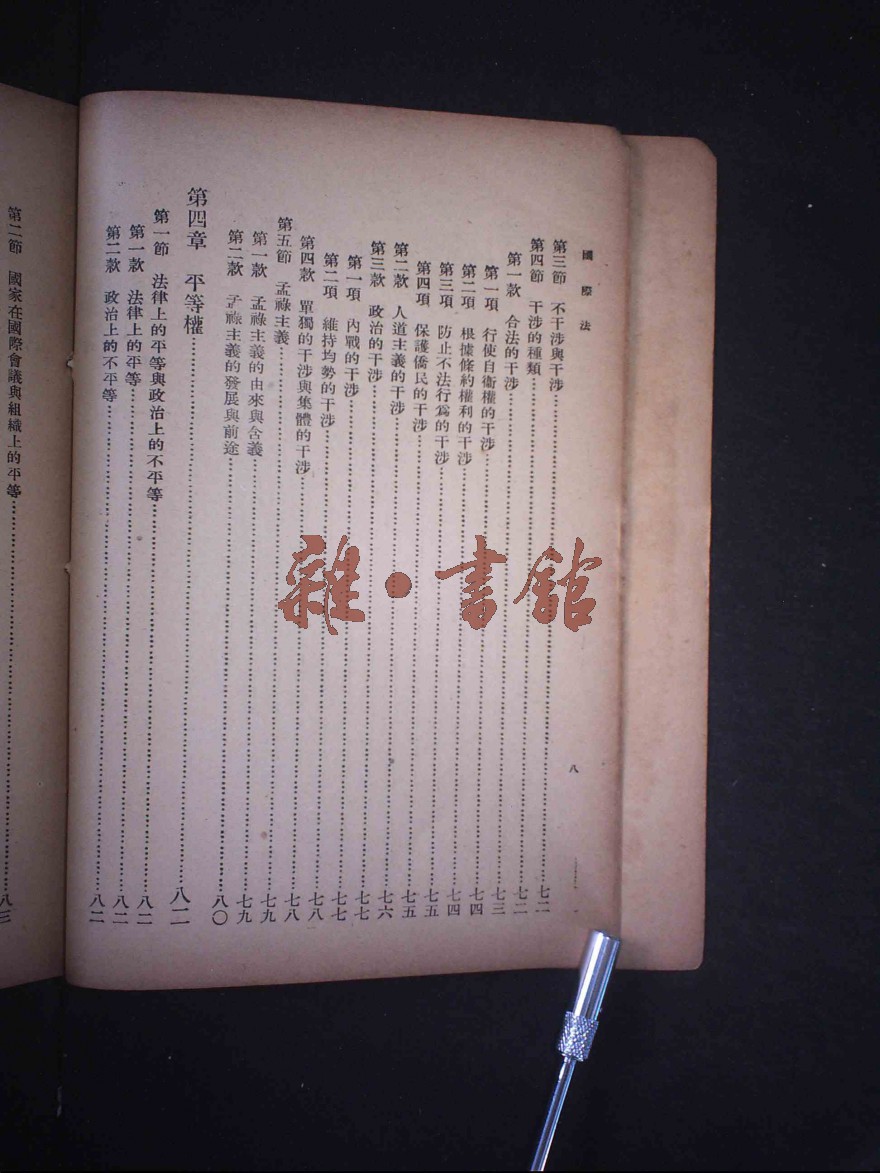 國際法
八
第三節　不干涉與干涉……七二
第四節　干涉的種類……七二
第一款　合法的干涉……七三
第一項　行使自衛權的干涉……七四
第二項　根據條約權利的干涉……七四
第三項　防止不法行爲的干涉……七五
第四項　保護僑民的干涉……七五
第二款　人道主義的干涉……七六
第三款　政治的干涉……七七
第一項　內戰的干涉……七七
第二項　維持均勢的干涉……七八
第四款　單獨的干涉與集體的干涉……七八
第五節　孟祿主義……七九
第一款　孟祿主義的由來與含義……七九
第二款　孟祿主義的發展與前途……八〇
第四章　平等權……八二
第一節　法律上的平等與政治上的不平等……八二
第一款　法律上的平等……八二
第二款　政治上的不平等……八二
第二節　國家在國際會議與組織上的平等……八三
雜・書館